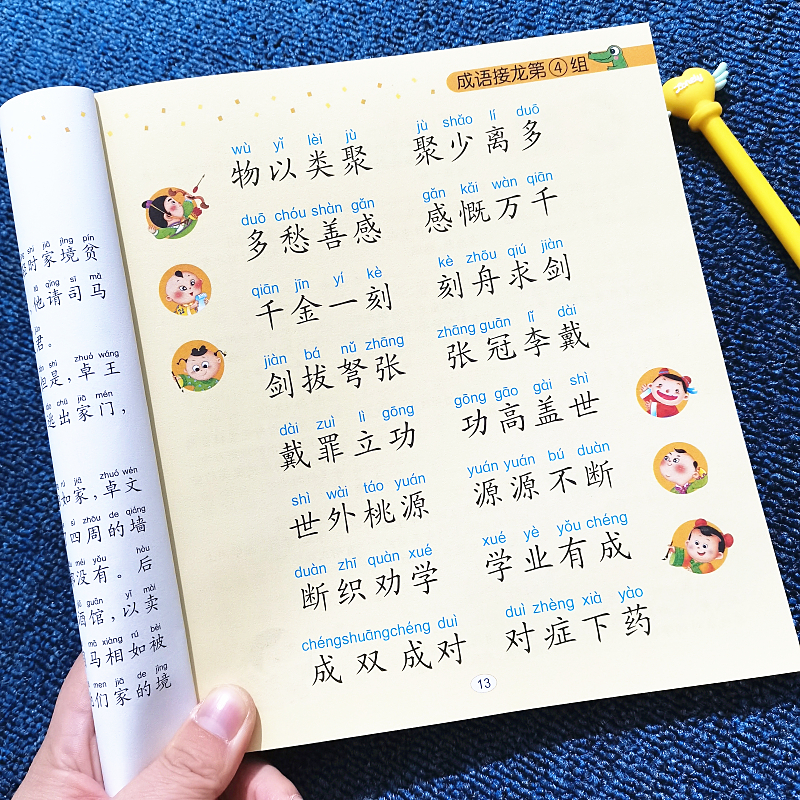 成语接龙第④组
wù yǐ lèi jù jù shǎo lí duō
物以类聚 聚少离多
duō chóu shàn gǎn gǎn kǎi wàn qiān
多愁善感 感慨万千
qiān jīn yí kè kè zhōu qiú jiàn
千金一刻 刻舟求剑
jiàn bá nǔ zhāng zhāng guān lǐ dài
剑拔弩张 张冠李戴
dài zuì lì gōng gōng gāo gài shì
戴罪立功 功高盖世
shì wài táo yuán yuán yuán bú duàn
世外桃源 源源不断
duàn zhī quàn xué xué yè yǒu chéng
断织劝学 学业有成
chéngshuāngchéng duì duì zhèng xià yào
成双成对 对症下药
13
shí jiā jìng pín
时家境贫
qǐng sī mǎ
他请司马
君。
shì zhuó wáng
但是，卓王
chū jiā mén
逃出家门，
rú jiā zhuó wén
如家，卓文
sì zhōu de qiáng
四周的墙
méi yǒu hòu
都没有。后
guǎn yǐ mài
酒馆，以卖
mǎ xiàng rú bèi
马相如被
men jiā de jìng
们家的境